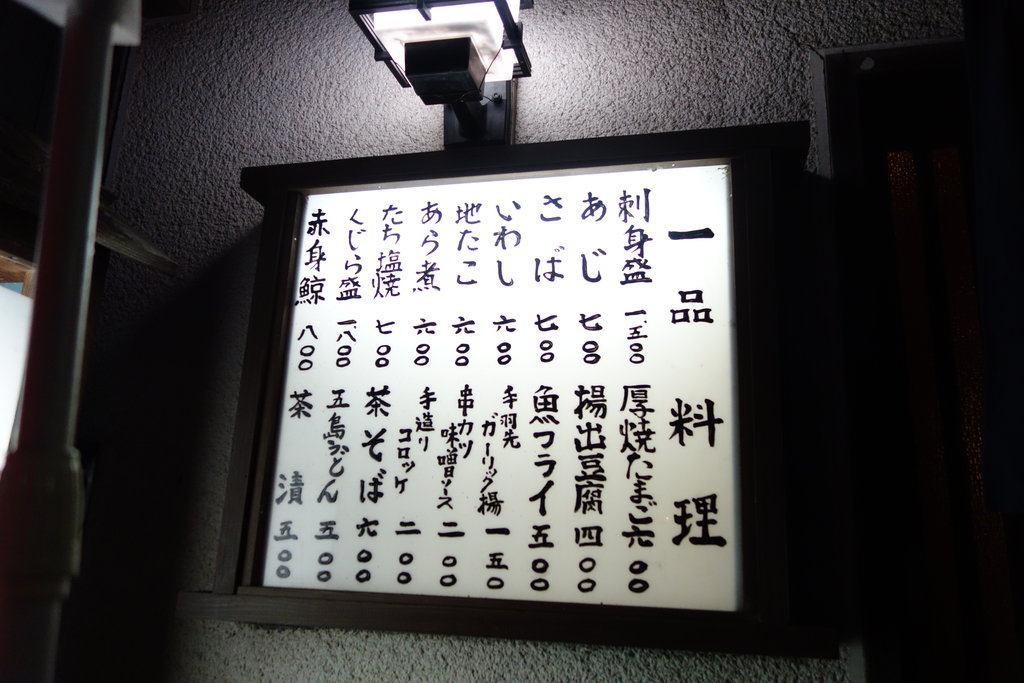 一品料理
刺身盛 一、五〇〇
あじ 七〇〇
さば 七〇〇
いわし 六〇〇
地たこ 六〇〇
あら煮 六〇〇
たち塩焼 七〇〇
くじら盛 一、八〇〇
赤身鯨 八〇〇
厚焼たまご 六〇〇
揚出豆腐 四〇〇
魚フライ 五〇〇
手羽先
ガーリック揚 一五〇
串カツ
味噌ソース 二〇〇
手造り
コロッケ 二〇〇
茶そば 六〇〇
五島うどん 五〇〇
茶漬 五〇〇